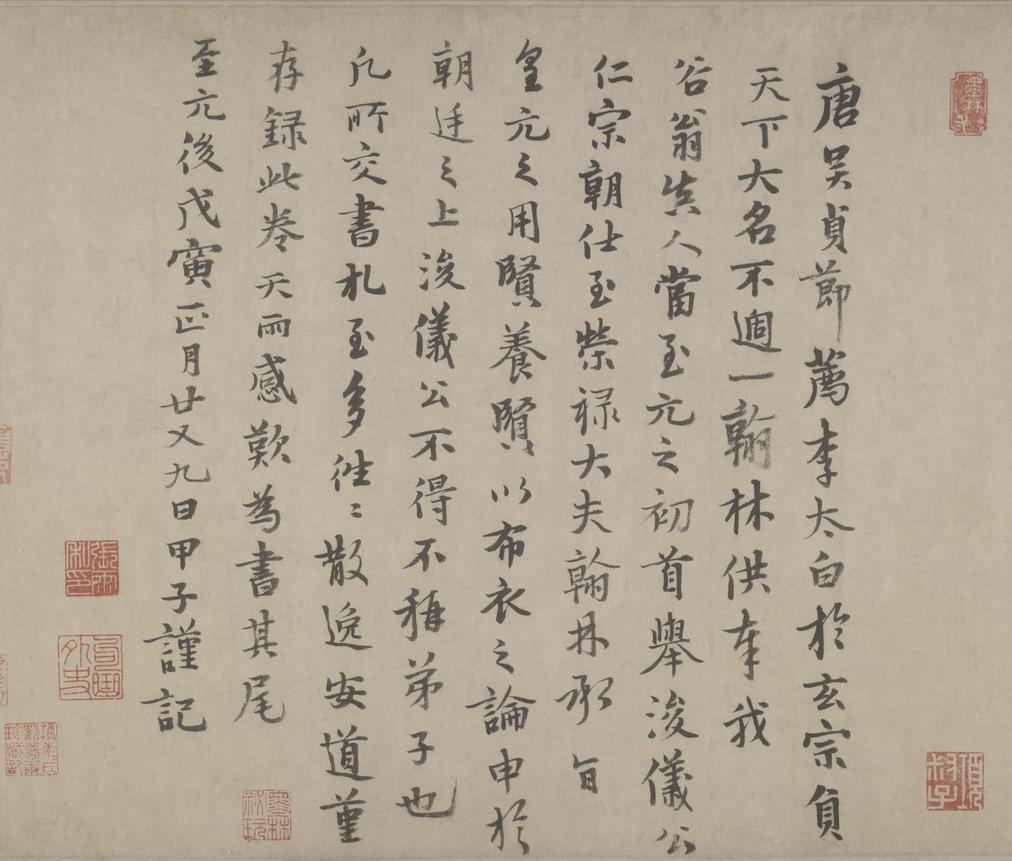 唐吴貞節薦李太白於玄宗負
天下大名不過一翰林供奉我
谷翁真人當至元之初首舉浚儀公
仁宗朝仕至榮禄大夫翰林承旨
皇元之用賢養賢以布衣之論申於
朝廷之上浚儀公不得不稱弟子也
凡所交書札至多往〻散逸安道謹
存録此卷天雨感歎為書其尾
至元後戊寅正月廿又九日甲子謹記
墨林
項子
張雨
墨林